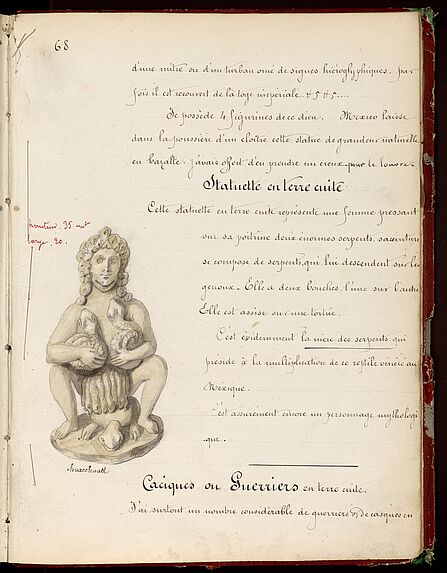 68
d'une mitre ou d'un turban orné de signes hiéroglyphiques. par
fois il est recouvert de la toge impériale &5 &5....
Je possède 4 figurines de ce dieu. Mexico laisse
dans la poussière d'un cloître cette statue de grandeur naturelle
en bazalte. j'avais offert d'en prendre un creux pour le Louvre.
Statuette en terre cuite
Cette statuette en terre cuite représente une femme pressant
hauteur. 35 cent
large. 20.
sur sa poitrine deux énormes serpents. sa ceinture
se compose de serpents, qui lui descendent sur les
genoux. Elle a deux bouches, l'une sur l'autre
Elle est assise sur une tortue.
C'est évidemment la mère des serpents qui
préside à la multiplication de ce reptile vénéré au
Mexique.
C'est assurément encore un personnage mythologi
que.
Caciques ou Guerriers en terre cuite.
J'ai surtout un nombre considérable de guerriers & de casques en